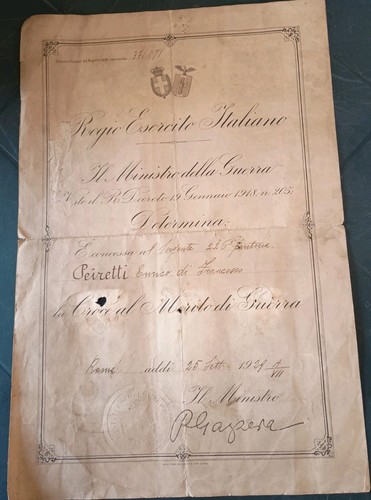 Regio Esercito Italiano
Il Ministro della Guerra
Visto il R. Decreto 19 Gennaio 1918, n. 205;
Determina:
È concessa al 226° Fanteria
Peiretti Enrico di Francesco
la Croce al Merito di Guerra
Roma addì 25 Sett. 1929 VII
Il Ministro
P Gazzera